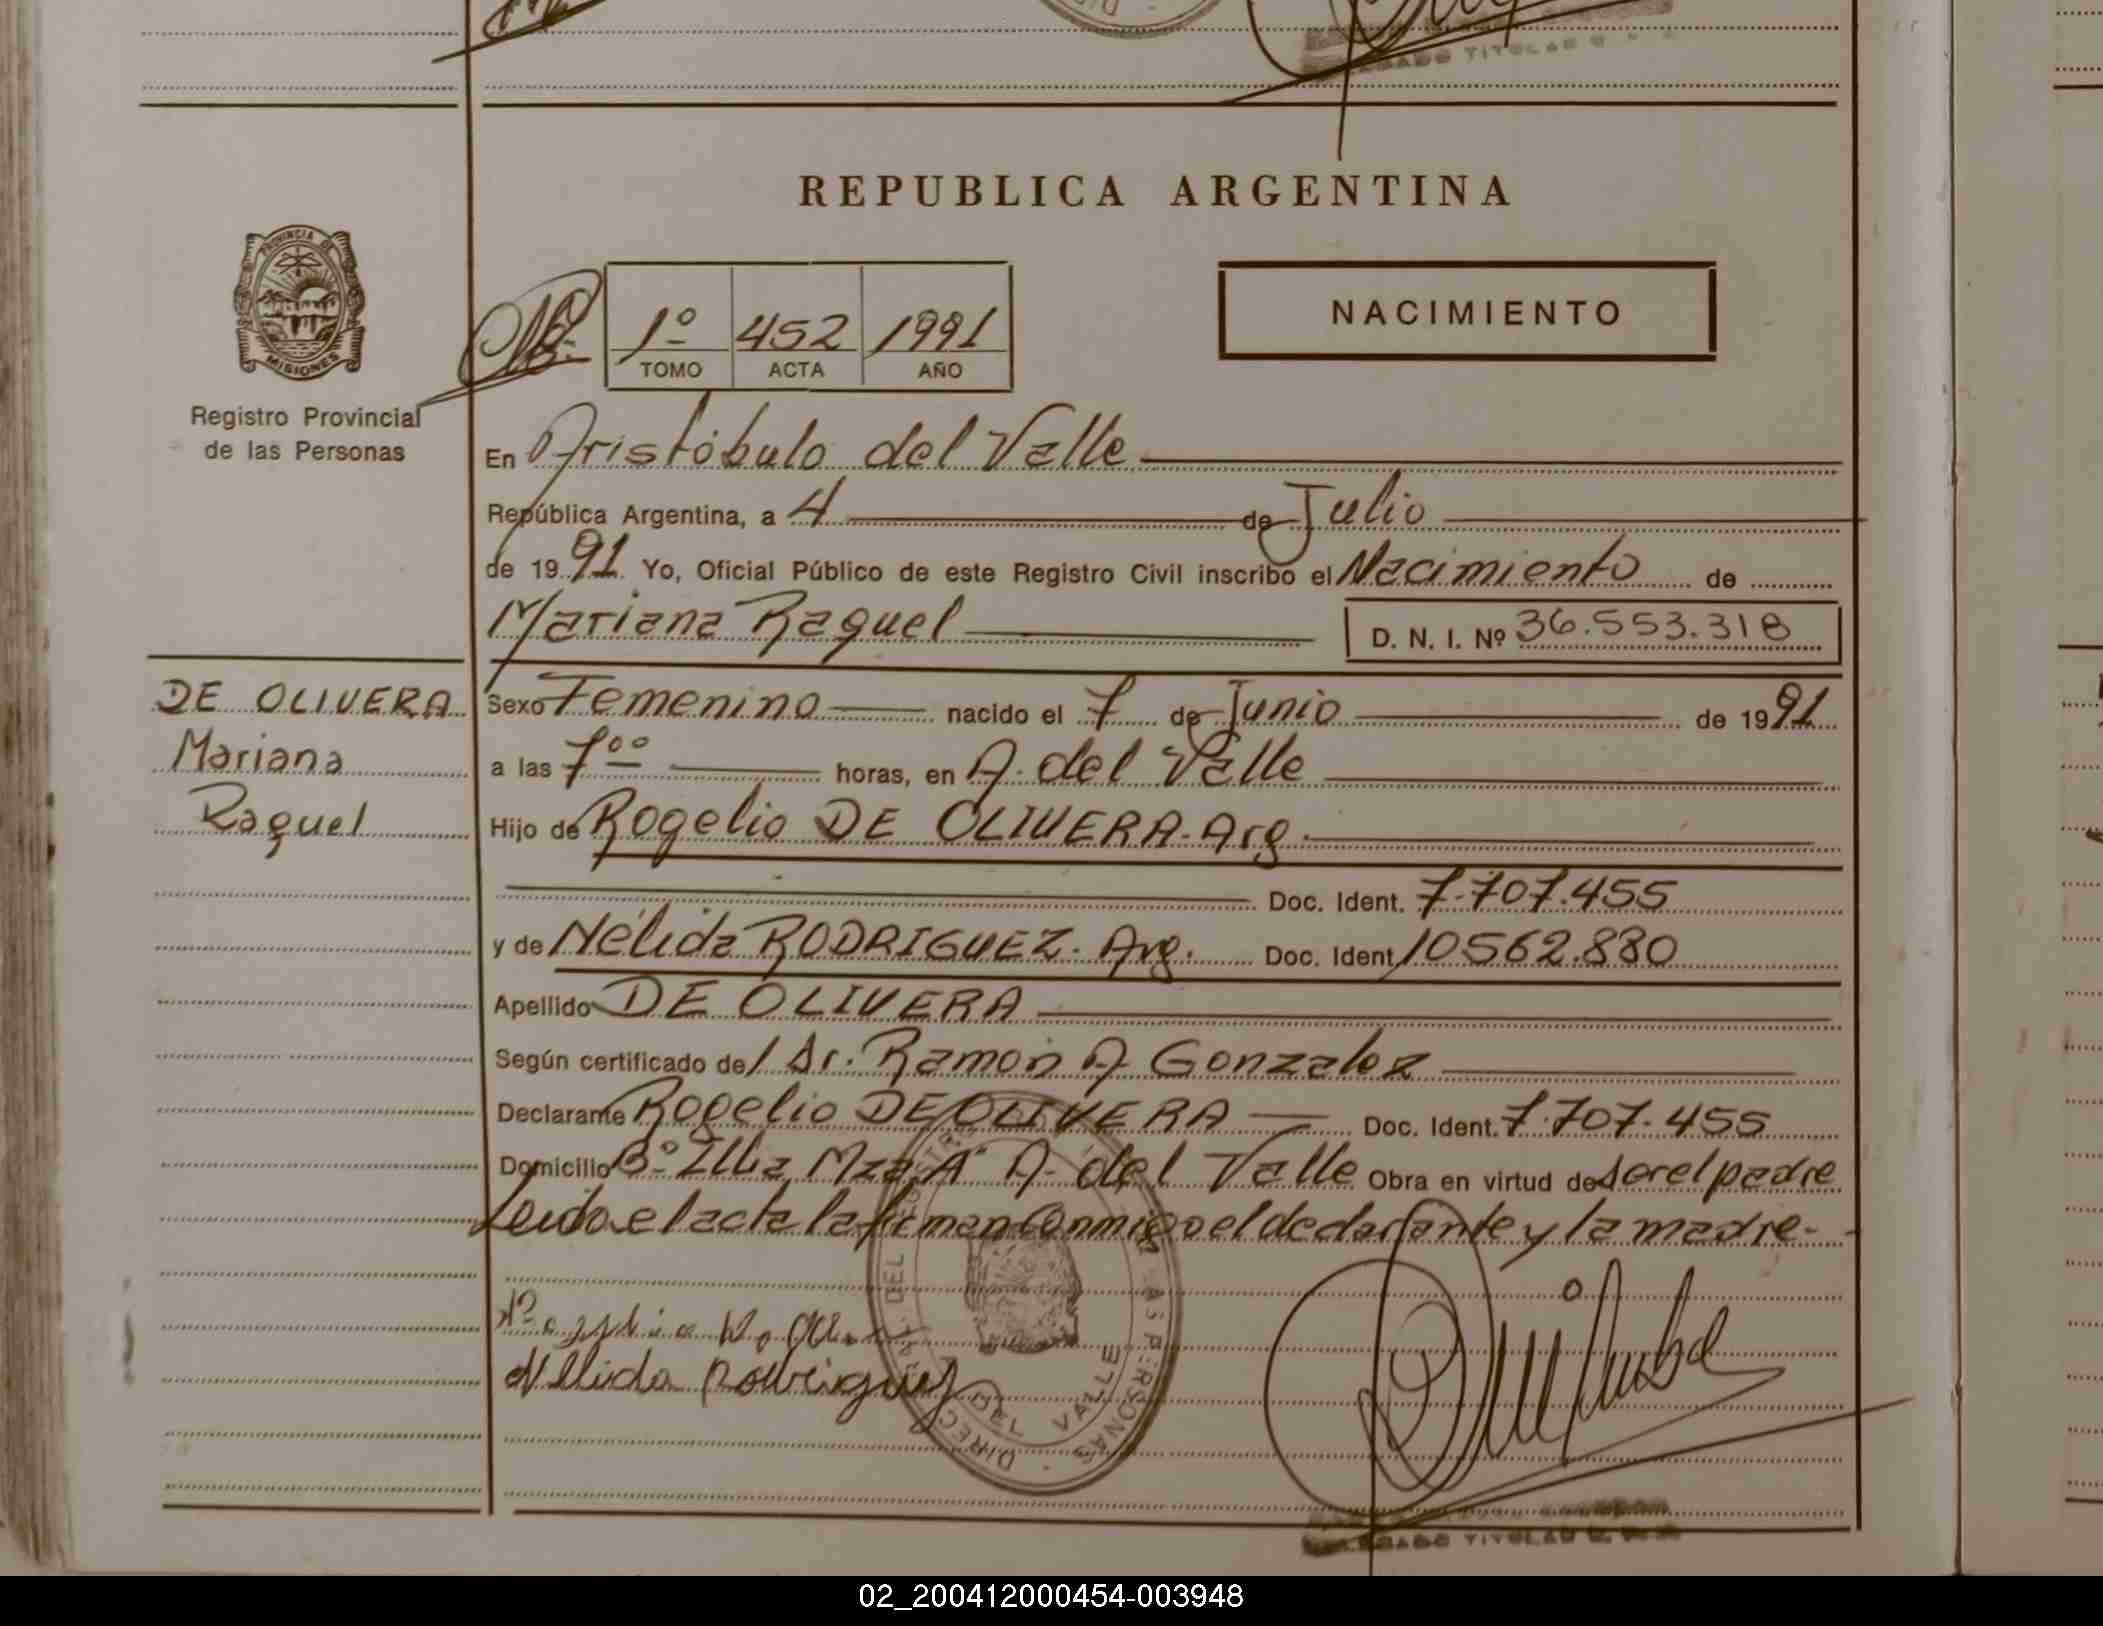 REPUBLICA ARGENTINA
PROVINCIA DE
MISIONES
Registro Provincial
de las Personas
1º 452 1991
TOMO ACTA AÑO
NACIMIENTO
En Aristóbulo del Valle
República Argentina, a 4 de Julio
de 1991 Yo, Oficial Público de este Registro Civil inscribo el Nacimiento de
Mariana Raquel D. N. I. Nº 36.553.318
DE OLIVERA
Mariana
Raquel
Sexo Femenino nacido el 7 de Junio de 1991
a las 7ºº horas, en A. del Valle
Hijo de Rogelio DE OLIVERA - Arg.
Doc. Ident. 7.707.455
y de Nélida RODRIGUEZ. Arg. Doc. Ident. 10562.880
Apellido DE OLIVERA
Según certificado del Dr. Ramón A Gonzalez
Declarante Rogelio DE OLIVERA Doc. Ident. 7.707.455
Domicilio Bº Illia Mza A" A. del Valle Obra en virtud de ser el padre
Leida el acta la firman Conmigo el declarante y la madre-
Nellida Rodriguez
DEL VALLE
02_200412000454-003948